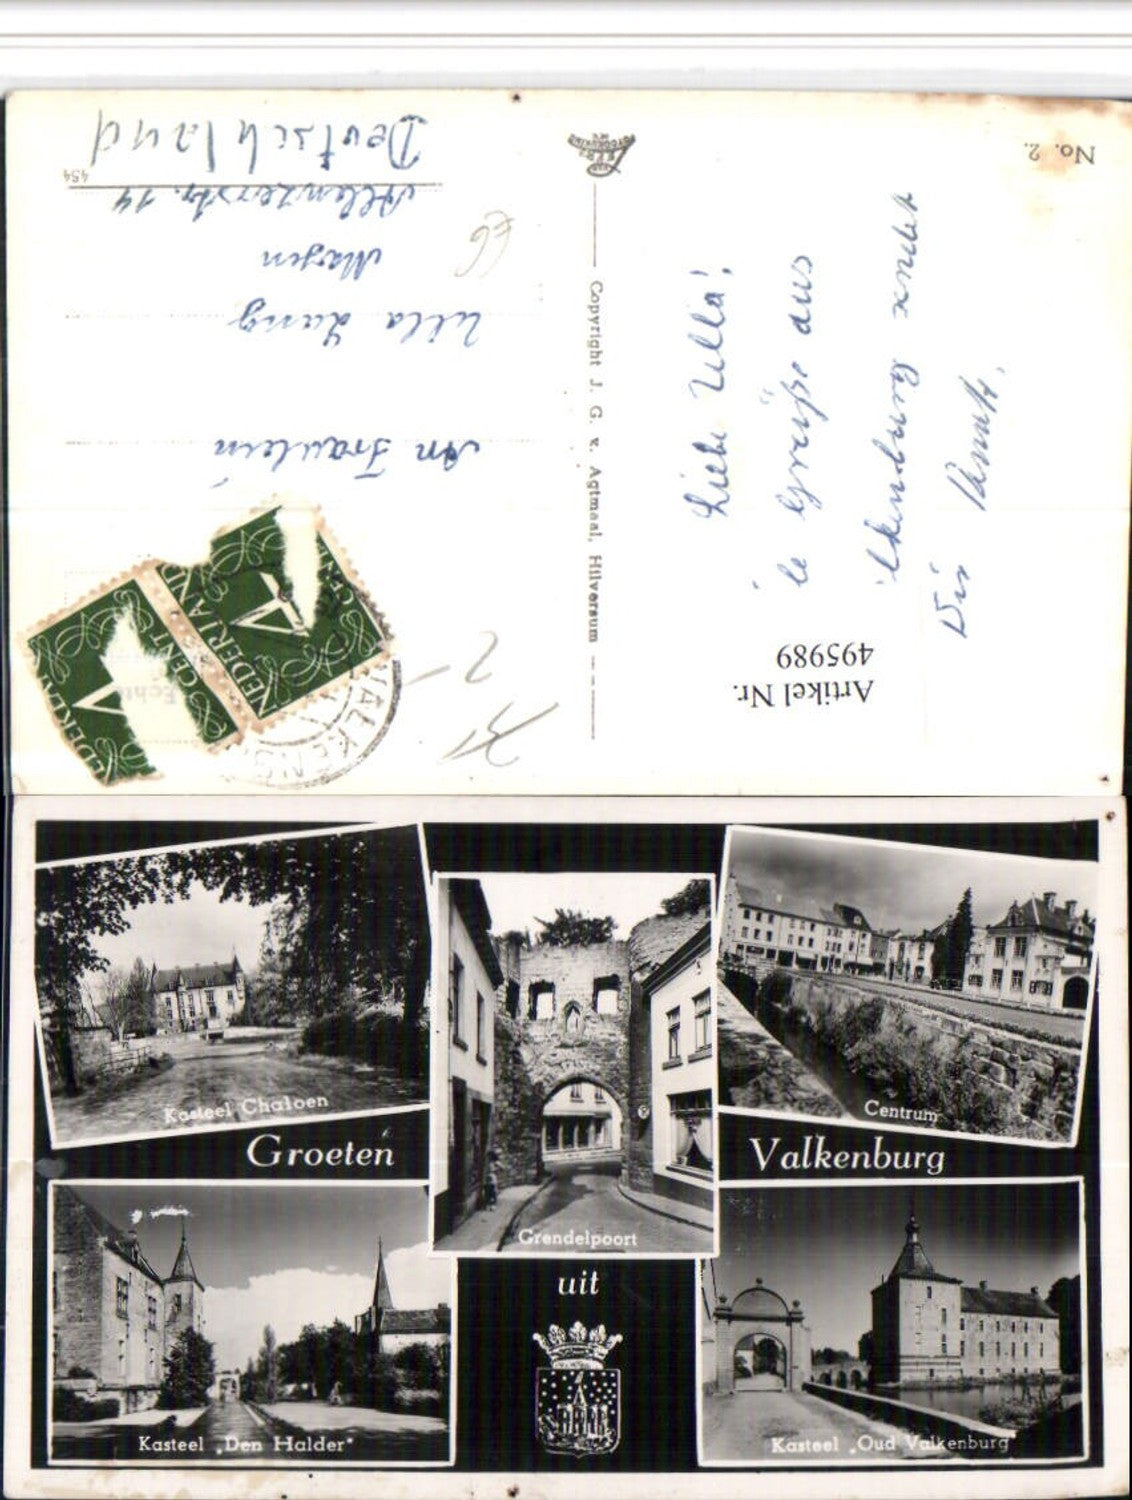 No. 2.
Liebe Ulla!
le Grüße aus
lkenburg sendet
Dir
Artikel Nr.
495989
Copyright J. G. v. Agtmaal, Hilversum
An Fräulein
Ulla Lang
Mayen
Allenzerstr. 14
454
Deutschland
NEDERLAND
CENT
NEDERLAND
CENT
VALKENB
Echte
Kasteel Chaloen
Grendelpoort
Centrum
Groeten
Valkenburg
uit
Kasteel „Den Halder"
Kasteel „Oud Valkenburg"